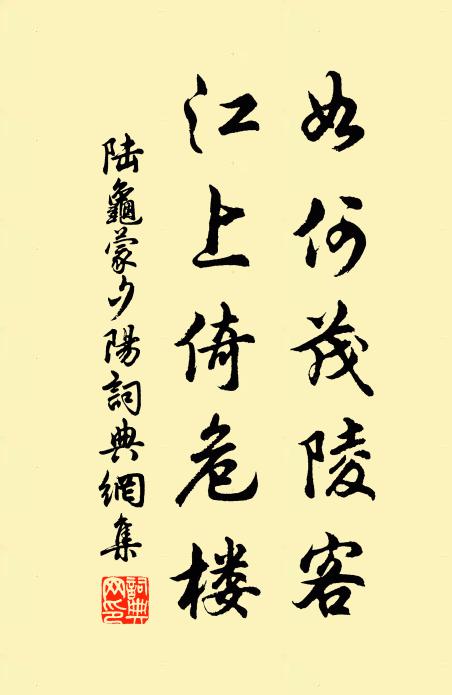 如何茂陵客
江上倚危楼
陆龜蒙夕陽詞典網集
詞典網印